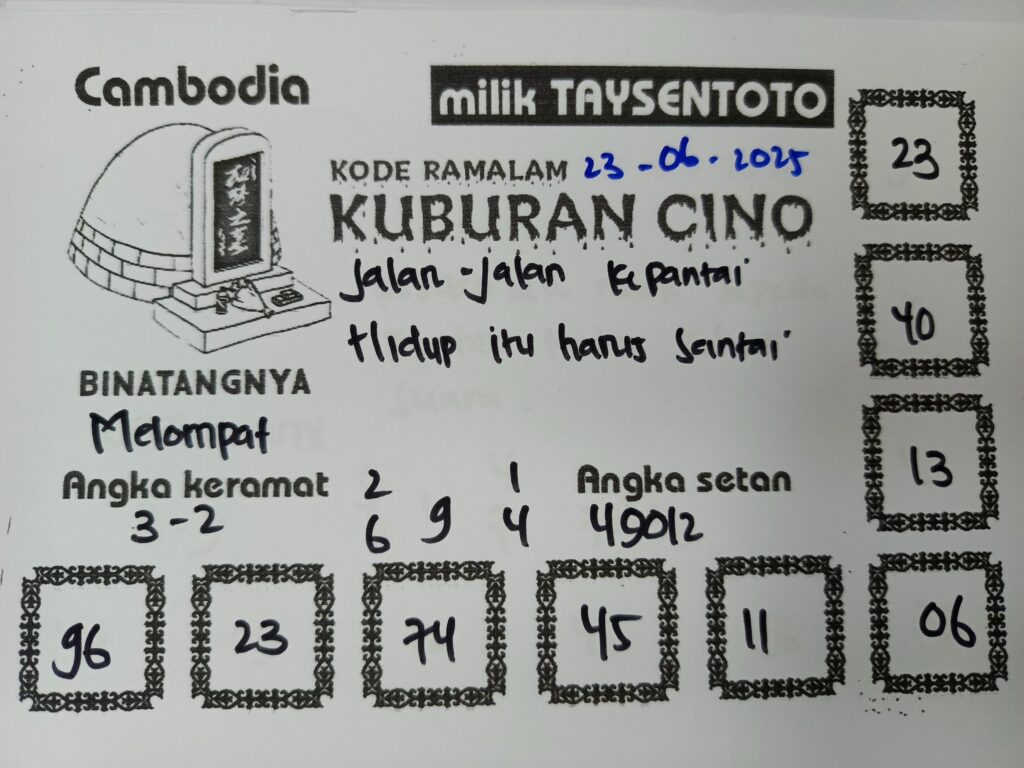 Cambodia
milik TAYSENTOTO
KODE RAMALAM 23-06-2025
KUBURAN CINO
Jalan-Jalan Kepantai
Hidup itu harus Santai
BINATANGNYA
Melompat
Angka keramat
3-2
2 1
6 9 4
Angka setan
49012
23
40
13
96 23 74 45 11 06